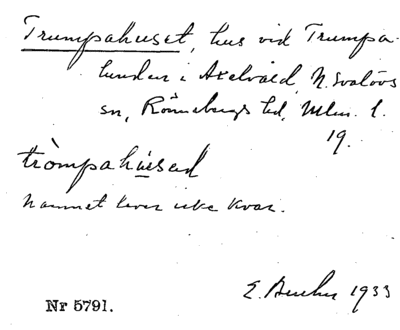 Trumpahuset, hus vid Trumpa-
lunden i Axelvold, N. Svalövs
sn, Rönnebergs hd, Mlm. l.
19.
tròmpahúsad
Namnet lever icke kvar.
E. 1933
Nr 5791.